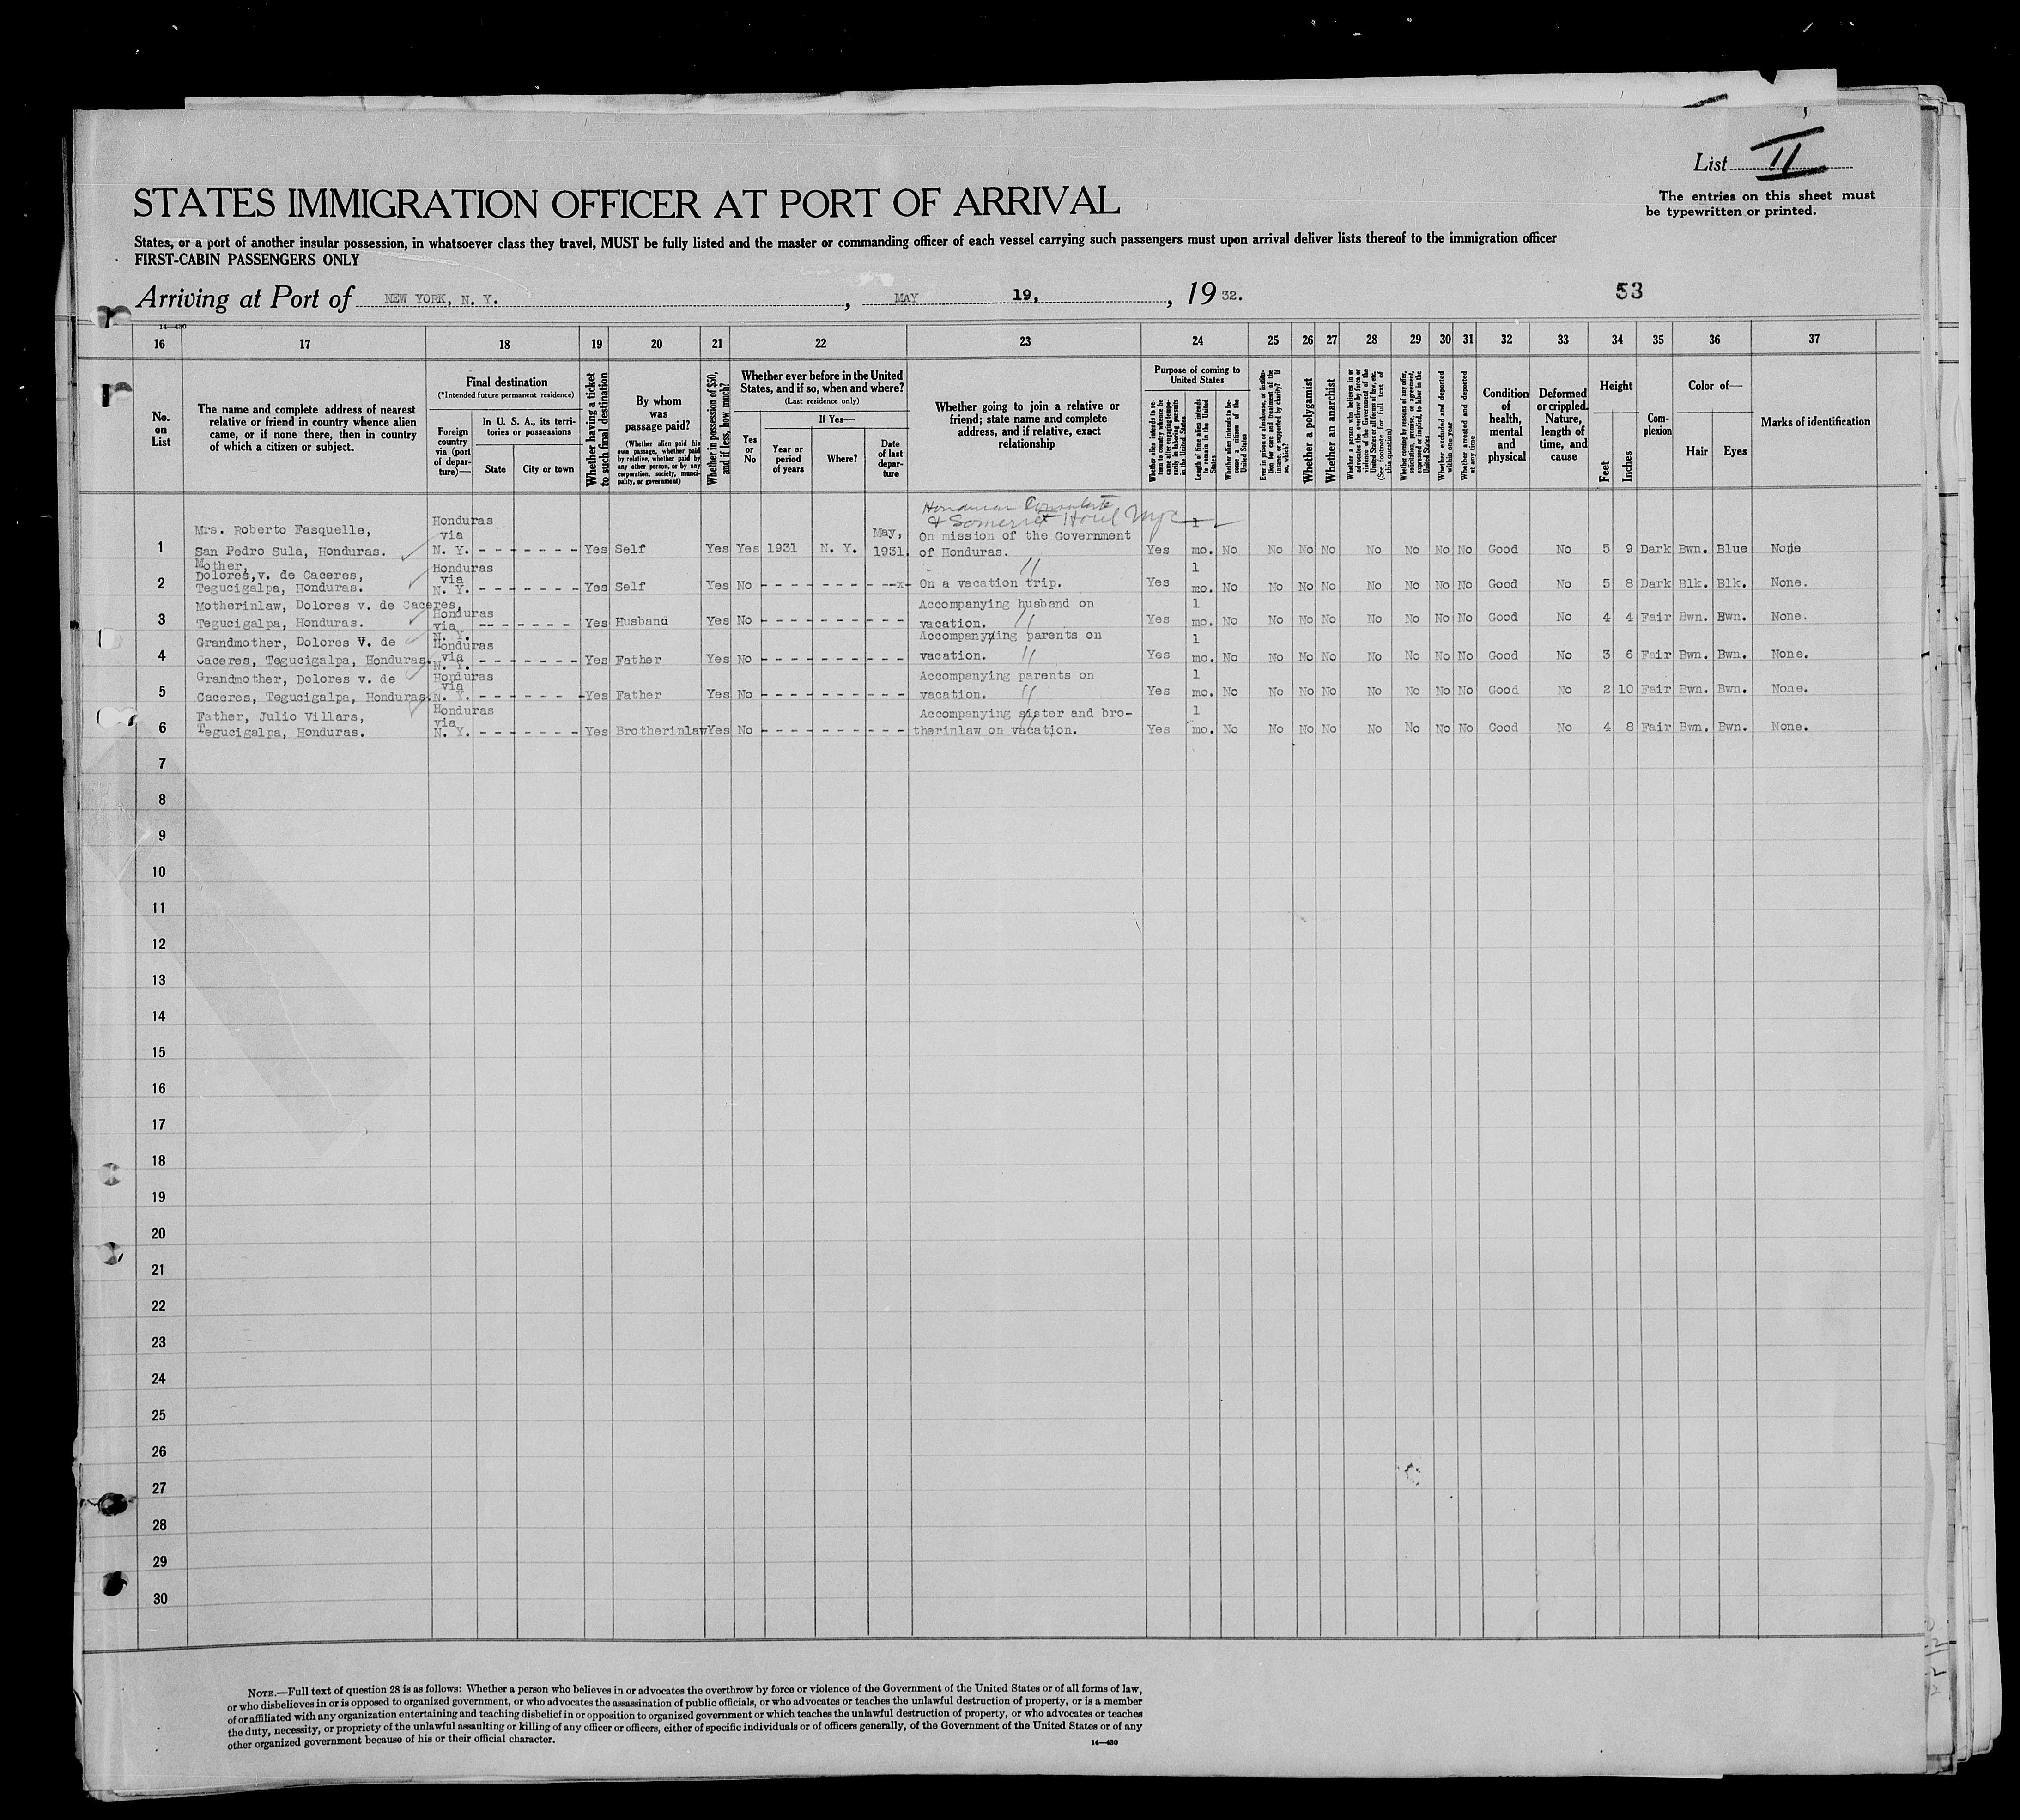 List II
The entries on this sheet must
be typewritten or printed.
STATES IMMIGRATION OFFICER AT PORT OF ARRIVAL
States, or a port of another insular possession, in whatsoever class they travel, MUST be fully listed and the master or commanding officer of each vessel carrying such passengers must upon arrival deliver lists thereof to the immigration officer
FIRST-CABIN PASSENGERS ONLY
Arriving at Port of NEW YORK, N. Y. , MAY 19, , 19 32. 53
14—430
16 17 18 19 20 21 22 23 24 25 26 27 28 29 30 31 32 33 34 35 36 37
No.
on
List
The name and complete address of nearest
relative or friend in country whence alien
came, or if none there, then in country
of which a citizen or subject.
Final destination
(*Intended future permanent residence)
Foreign
country
via (port
of depar-
ture)—
In U. S. A., its terri-
tories or possessions
State
City or town
Whether having a ticket
to such final destination
By whom
was
passage paid?
(Whether alien paid his
own passage, whether paid
by relative, whether paid by
any other person, or by any
corporation, society, munici-
pality, or government)
Whether in possession of $50,
and if less, how much?
Whether ever before in the United
States, and if so, when and where?
(Last residence only)
Yes
or
No
If Yes—
Year or
period
of years
Where?
Date
of last
depar-
ture
Whether going to join a relative or
friend; state name and complete
address, and if relative, exact
relationship
Purpose of coming to
United States
Whether alien intends to re-
turn to country whence he
came after engaging tempo-
rarily in laboring pursuits
in the United States
Length of time alien intends
to remain in the United
States
Whether alien intends to be-
come a citizen of the
United States
Ever in prison or almshouse, or institu-
tion for care and treatment of the
insane, or supported by charity? If
so, which?
Whether a polygamist
Whether an anarchist
Whether a person who believes in or
advocates the overthrow by force or
violence of the Government of the
United States or all forms of law, etc.
(See footnote for full text of
this question)
Whether coming by reason of any offer,
solicitation, promise, or agreement,
expressed or implied, to labor in the
United States
Whether excluded and deported
within one year
Whether arrested and deported
at any time
Condition
of
health,
mental
and
physical
Deformed
or crippled.
Nature,
length of
time, and
cause
Height
Feet
Inches
Com-
plexion
Color of—
Hair
Eyes
Marks of identification
Honduran Consulate
& Somerset Hotel NYC
1 Mrs. Roberto Fasquelle,
San Pedro Sula, Honduras. Honduras
via
N. Y. - - - - - - - Yes Self Yes Yes 1931 N. Y. May,
1931. On mission of the Government
of Honduras. Yes 1
mo. No No No No No No No No Good No 5 9 Dark Bwn. Blue None
2 Mother,
Dolores,v. de Caceres,
Tegucigalpa, Honduras. Honduras
via
N. Y. - - - - - - - Yes Self Yes No - - - - - - - - --x- On a vacation trip. " Yes 1
mo. No No No No No No No No Good No 5 8 Dark Blk. Blk. None.
3 Motherinlaw, Dolores v. de Caceres,
Tegucigalpa, Honduras. Honduras
via
N. Y. - - - - - - - Yes Husband Yes No - - - - - - - - - - Accompanying husband on
vacation. " Yes 1
mo. No No No No No No No No Good No 4 4 Fair Bwn. Bwn. None.
4 Grandmother, Dolores V. de
Caceres, Tegucigalpa, Honduras. Honduras
via
N. Y. - - - - - - - Yes Father Yes No - - - - - - - - - - Accompanying parents on
vacation. " Yes 1
mo. No No No No No No No No Good No 3 6 Fair Bwn. Bwn. None.
5 Grandmother, Dolores v. de
Caceres, Tegucigalpa, Honduras. Honduras
via
N. Y. - - - - - - - Yes Father Yes No - - - - - - - - - - Accompanying parents on
vacation. " Yes 1
mo. No No No No No No No No Good No 2 10 Fair Bwn. Bwn. None.
6 Father, Julio Villars,
Tegucigalpa, Honduras. Honduras
via
N. Y. - - - - - - - Yes Brotherinlaw Yes No - - - - - - - - - - Accompanying sister and bro-
therinlaw on vacation. " Yes 1
mo. No No No No No No No No Good No 4 8 Fair Bwn. Bwn. None.
7
8
9
10
11
12
13
14
15
16
17
18
19
20
21
22
23
24
25
26
27
28
29
30
NOTE.—Full text of question 28 is as follows: Whether a person who believes in or advocates the overthrow by force or violence of the Government of the United States or of all forms of law,
or who disbelieves in or is opposed to organized government, or who advocates the assassination of public officials, or who advocates or teaches the unlawful destruction of property, or is a member
of or affiliated with any organization entertaining and teaching disbelief in or opposition to organized government or which teaches the unlawful destruction of property, or who advocates or teaches
the duty, necessity, or propriety of the unlawful assaulting or killing of any officer or officers, either of specific individuals or of officers generally, of the Government of the United States or of any
other organized government because of his or their official character.
14—430